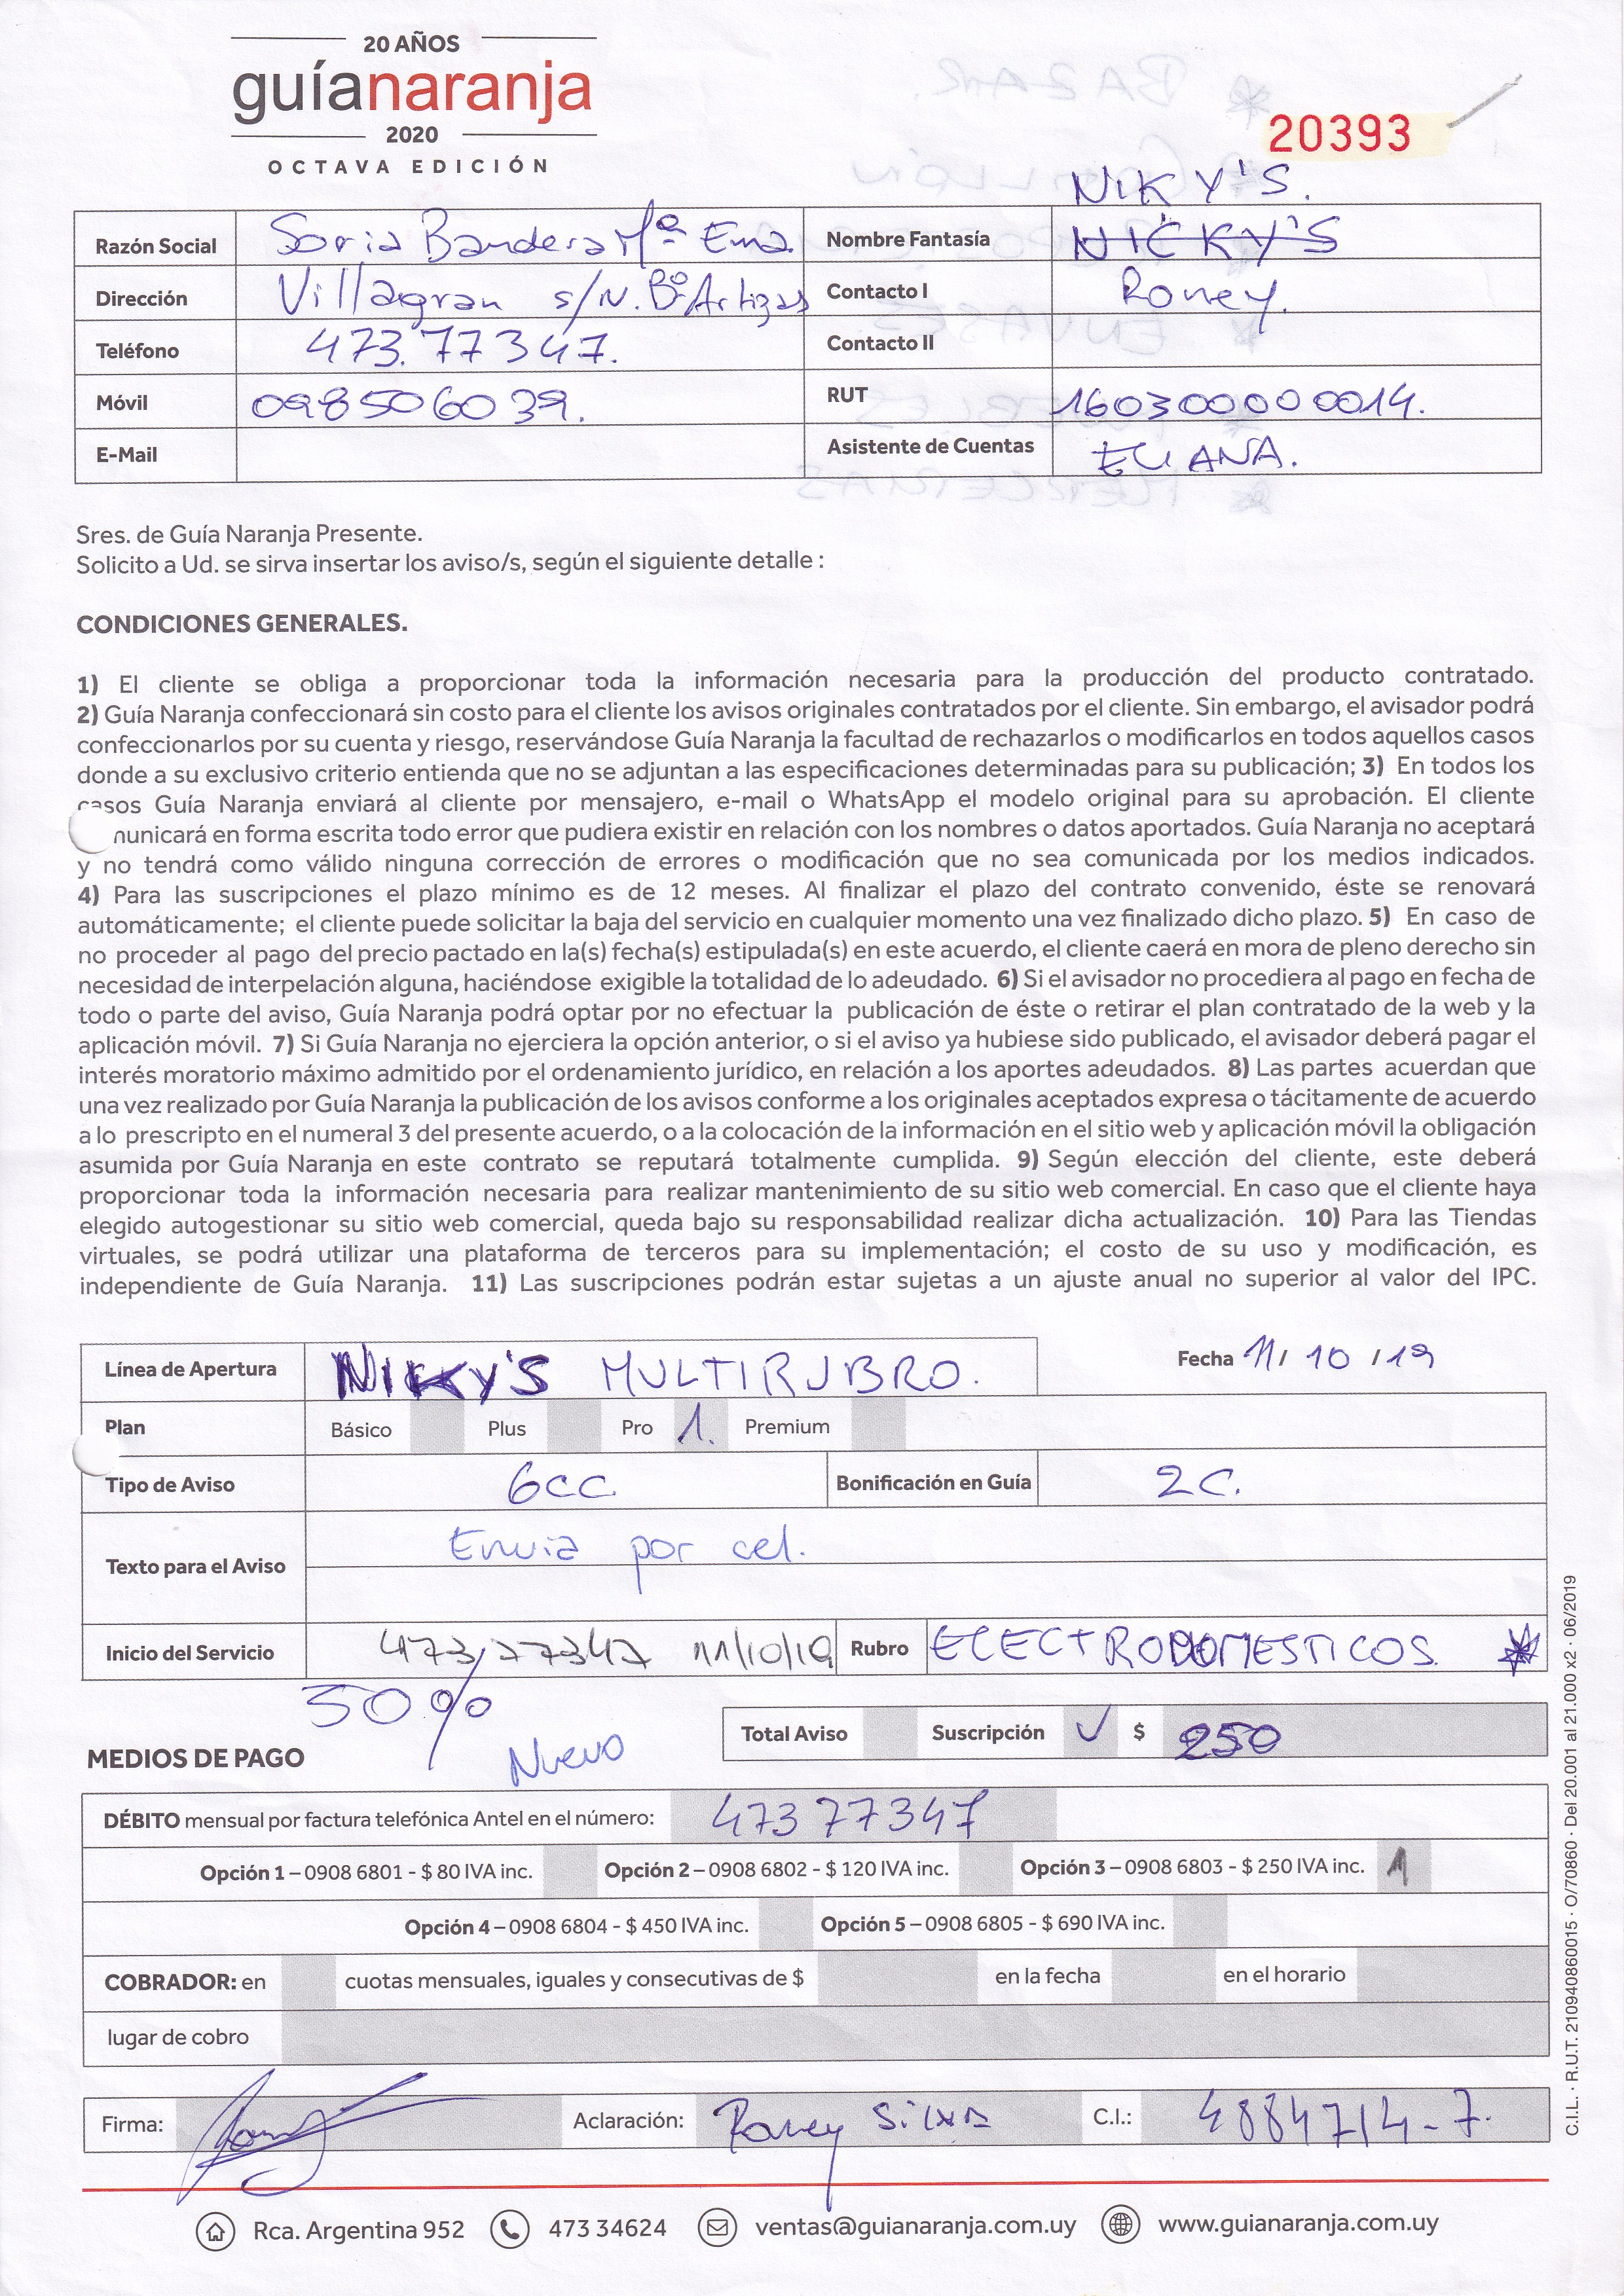 20 AÑOS
guíanaranja
2020
OCTAVA EDICIÓN
20393
NIKY'S.
Razón Social Soria Bandera Mª Ema. Nombre Fantasía NICKY'S
Dirección Villagran s/N. Bº Artigas Contacto I Roney.
Teléfono 473.77347. Contacto II
Móvil 098506039. RUT 160300000014.
E-Mail Asistente de Cuentas ELIANA.
Sres. de Guía Naranja Presente.
Solicito a Ud. se sirva insertar los aviso/s, según el siguiente detalle :
CONDICIONES GENERALES.
1) El cliente se obliga a proporcionar toda la información necesaria para la producción del producto contratado.
2) Guía Naranja confeccionará sin costo para el cliente los avisos originales contratados por el cliente. Sin embargo, el avisador podrá
confeccionarlos por su cuenta y riesgo, reservándose Guía Naranja la facultad de rechazarlos o modificarlos en todos aquellos casos
donde a su exclusivo criterio entienda que no se adjuntan a las especificaciones determinadas para su publicación; 3) En todos los
casos Guía Naranja enviará al cliente por mensajero, e-mail o WhatsApp el modelo original para su aprobación. El cliente
nunicará en forma escrita todo error que pudiera existir en relación con los nombres o datos aportados. Guía Naranja no aceptará
y no tendrá como válido ninguna corrección de errores o modificación que no sea comunicada por los medios indicados.
4) Para las suscripciones el plazo mínimo es de 12 meses. Al finalizar el plazo del contrato convenido, éste se renovará
automáticamente; el cliente puede solicitar la baja del servicio en cualquier momento una vez finalizado dicho plazo. 5) En caso de
no proceder al pago del precio pactado en la(s) fecha(s) estipulada(s) en este acuerdo, el cliente caerá en mora de pleno derecho sin
necesidad de interpelación alguna, haciéndose exigible la totalidad de lo adeudado. 6) Si el avisador no procediera al pago en fecha de
todo o parte del aviso, Guía Naranja podrá optar por no efectuar la publicación de éste o retirar el plan contratado de la web y la
aplicación móvil. 7) Si Guía Naranja no ejerciera la opción anterior, o si el aviso ya hubiese sido publicado, el avisador deberá pagar el
interés moratorio máximo admitido por el ordenamiento jurídico, en relación a los aportes adeudados. 8) Las partes acuerdan que
una vez realizado por Guía Naranja la publicación de los avisos conforme a los originales aceptados expresa o tácitamente de acuerdo
a lo prescripto en el numeral 3 del presente acuerdo, o a la colocación de la información en el sitio web y aplicación móvil la obligación
asumida por Guía Naranja en este contrato se reputará totalmente cumplida. 9) Según elección del cliente, este deberá
proporcionar toda la información necesaria para realizar mantenimiento de su sitio web comercial. En caso que el cliente haya
elegido autogestionar su sitio web comercial, queda bajo su responsabilidad realizar dicha actualización. 10) Para las Tiendas
virtuales, se podrá utilizar una plataforma de terceros para su implementación; el costo de su uso y modificación, es
independiente de Guía Naranja. 11) Las suscripciones podrán estar sujetas a un ajuste anual no superior al valor del IPC.
Línea de Apertura NIKKY'S MULTIRUBRO. Fecha 11/ 10 /19
Plan Básico Plus Pro 1. Premium
Tipo de Aviso 6CC. Bonificación en Guía 2C.
Texto para el Aviso Envia por cel.
Inicio del Servicio 473/77347 11/10/19 Rubro ELECTRODOMESTICOS
50%
Nuevo
Total Aviso Suscripción ✓ $ 250
MEDIOS DE PAGO
DÉBITO mensual por factura telefónica Antel en el número: 473 77347
Opción 1 – 0908 6801 - $ 80 IVA inc. Opción 2 – 0908 6802 - $ 120 IVA inc. Opción 3 – 0908 6803 - $ 250 IVA inc. 1
Opción 4 – 0908 6804 - $ 450 IVA inc. Opción 5 – 0908 6805 - $ 690 IVA inc.
COBRADOR: en cuotas mensuales, iguales y consecutivas de $ en la fecha en el horario
lugar de cobro
Firma: Aclaración: Roney Silva C.I.: 4884714-7.
Rca. Argentina 952 473 34624 ventas@guianaranja.com.uy www.guianaranja.com.uy
C.I.L. · R.U.T. 210940860015 · O/70860 · Del 20.001 al 21.000 x2 · 06/2019